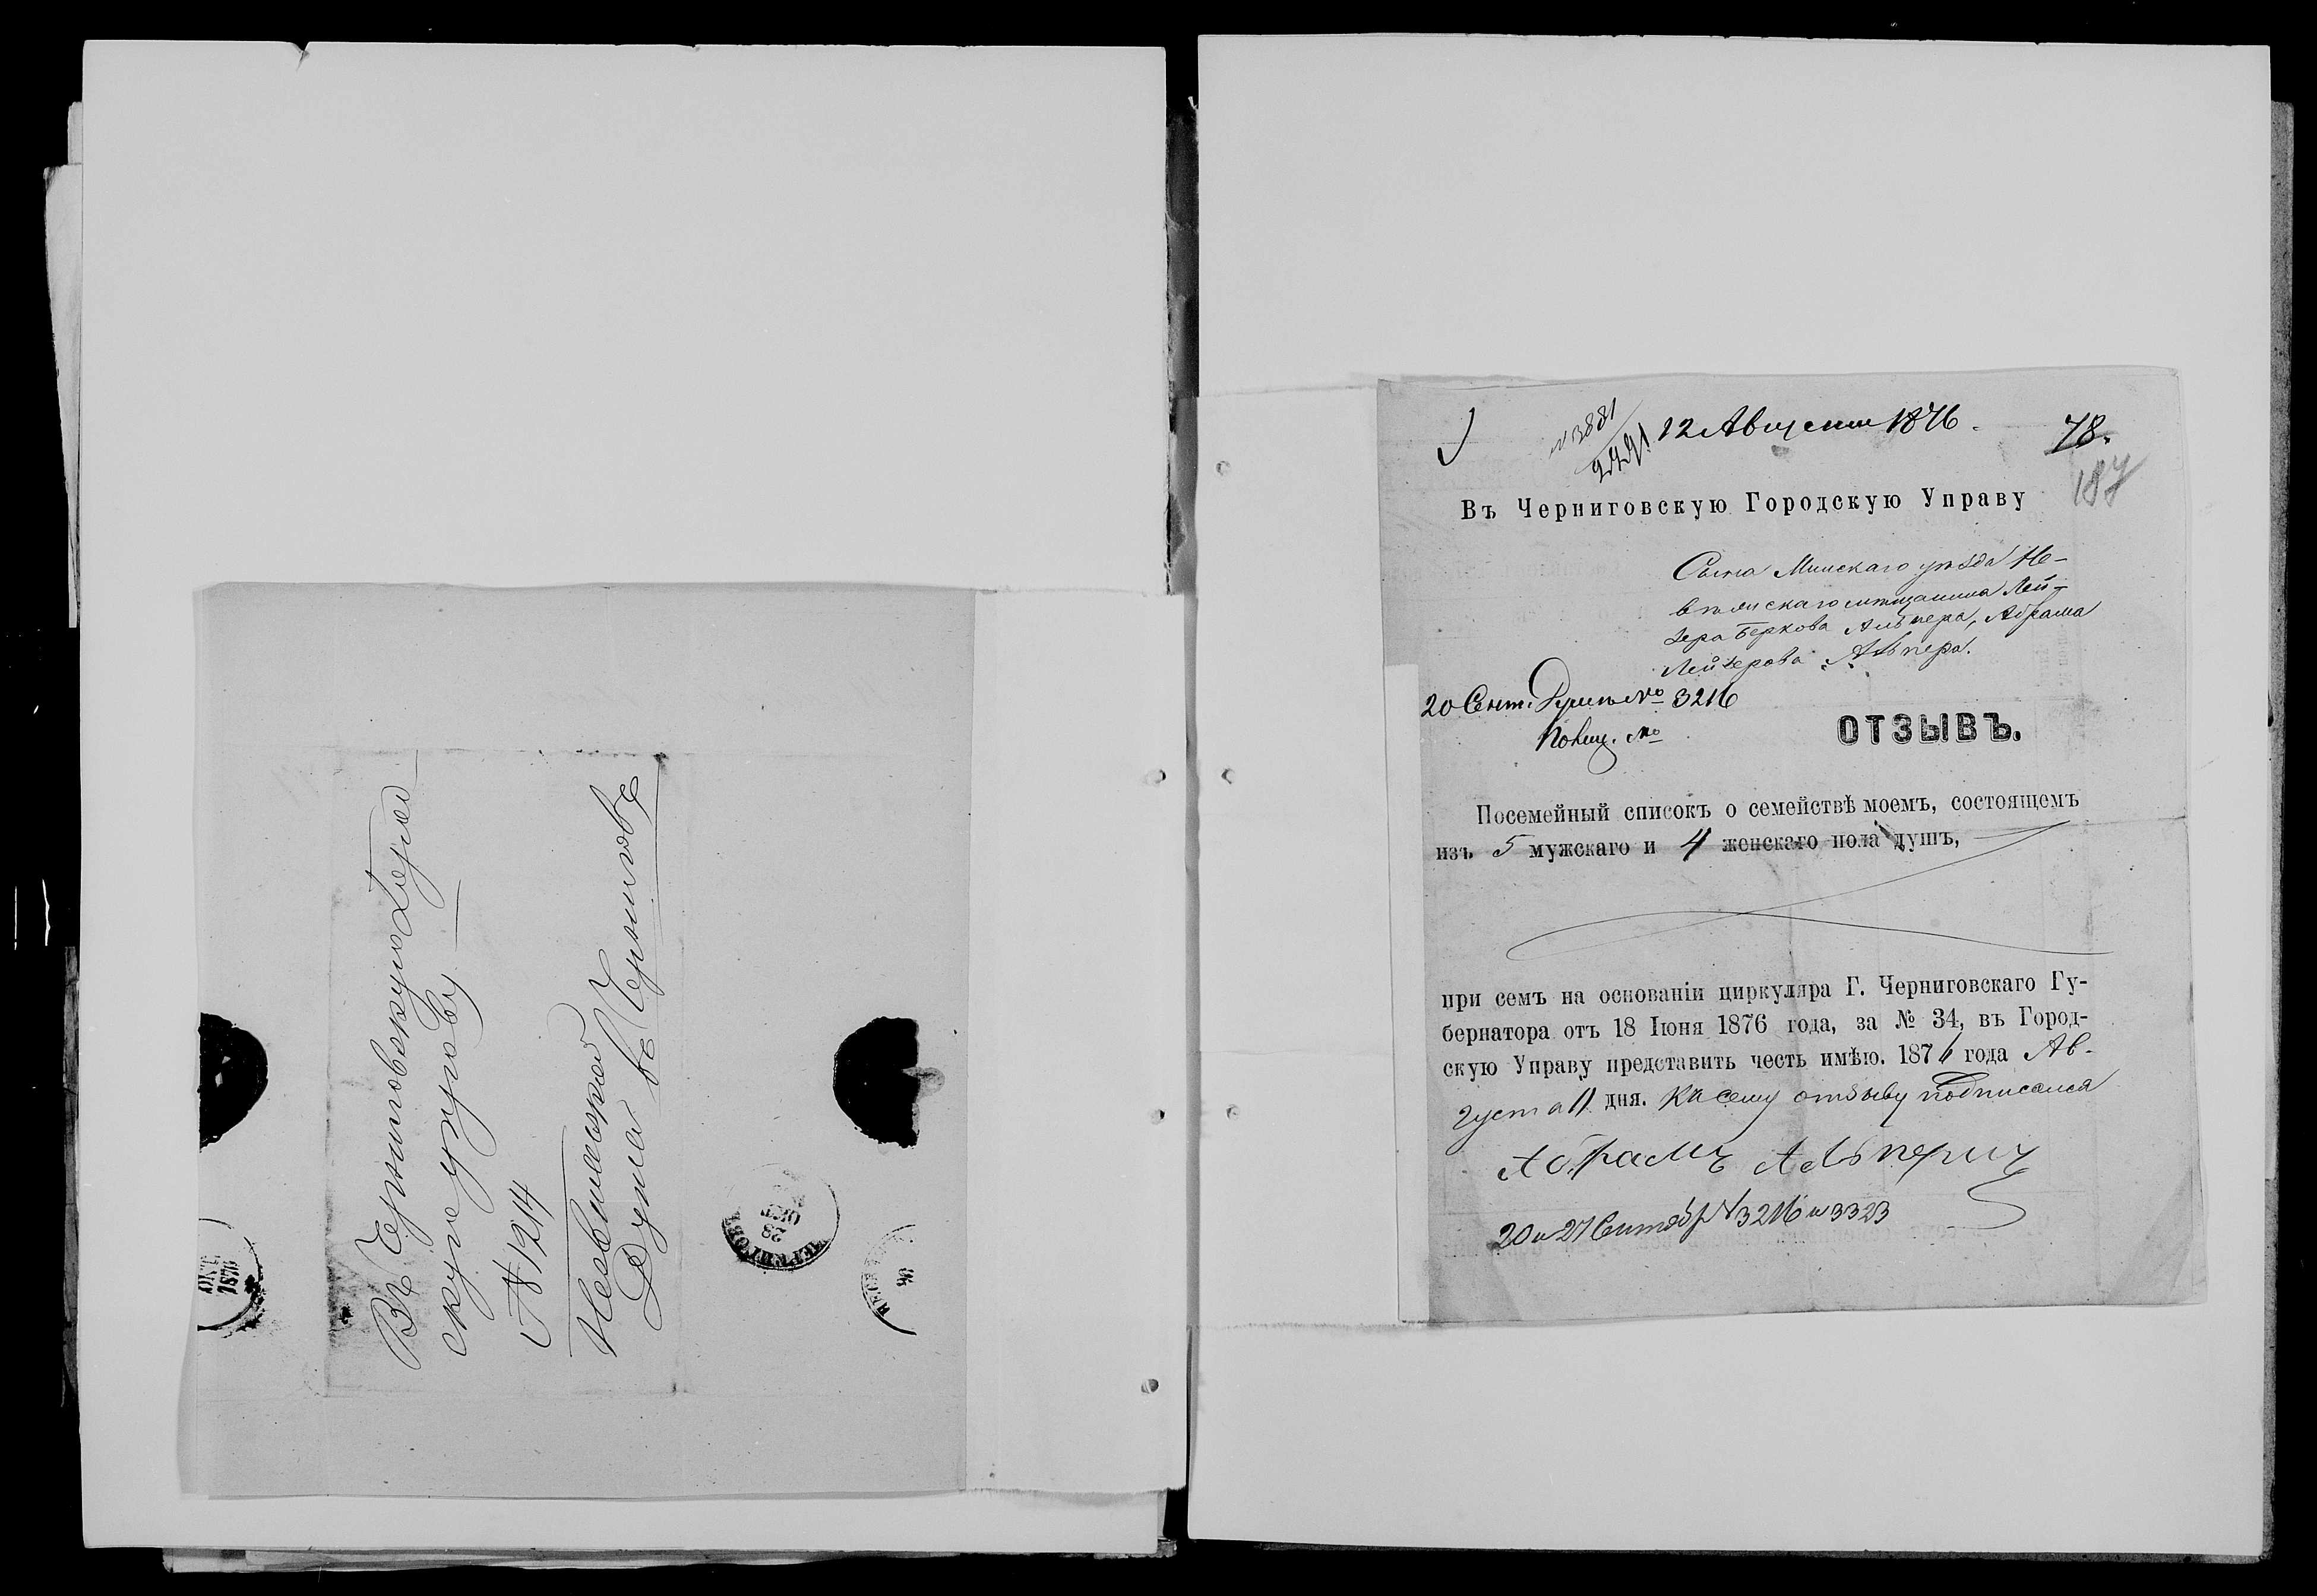 Въ Черниговскую Город-
скую управу
№ 1214
Невшавской
Думы въ Черниговъ
ЧЕРНИГОВЪ
28
ОКТ
ОКТ.
1876
№ 3881
12 Августа 1876.
78.
187
Въ Черниговскую Городскую Управу
Сына Минскаго уѣзда Не-
Беркова Альпера, Абрама
Лейзерова Альпера.
20 Сент. Думѣ № 3216
Полиц. №
ОТЗЫВЪ.
Посемейный списокъ о семействѣ моемъ, состоящемъ
изъ 5 мужскаго и 4 женскаго пола душъ,
при семъ на основаніи циркуляра Г. Черниговскаго Гу-
бернатора отъ 18 Іюня 1876 года, за № 34, въ Город-
скую Управу представить честь имѣю. 1876 года Ав-
густа 11 дня. Къ сему отзыву подписался
Абрамъ Альперинъ
20 и 27 Сентябр № 3216 и 3323